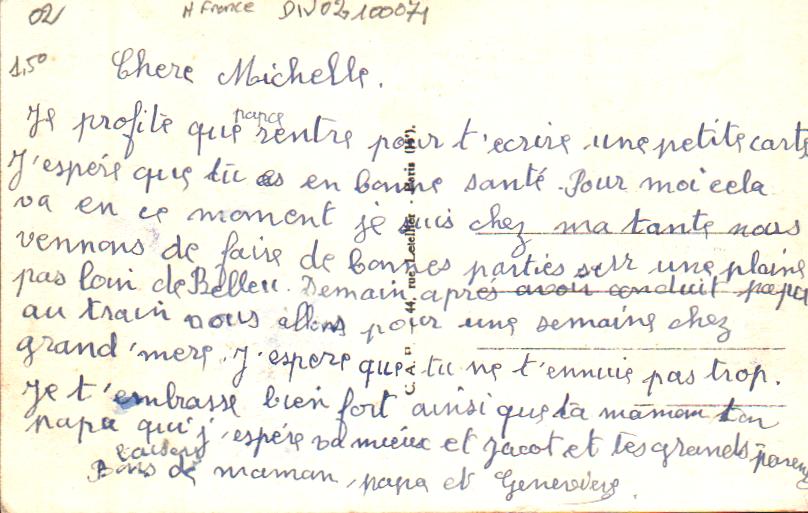 02 N France DIV02100071
1,50 Chere Michelle.
Je profite que papa rentre pour t'ecrire une petite carte
J'espére que tu es en bonne santé. Pour moi cela
va en ce moment je suis chez ma tante nous
vennons de faire de bonnes parties sur une plaine
pas loin de Belleu. Demain aprés avoir conduit papa
au train nous allons pour une semaine chez
grand'mere. J'espere que tu ne t'ennuie pas trop.
Je t'embrasse bien fort ainsi que ta maman ton
papa qui j'espére va mieux et Jacot et tes grands parents
Bons baisers de maman, papa et Genevieve.
C. A. P. 44, rue Letellier - Paris (15e).